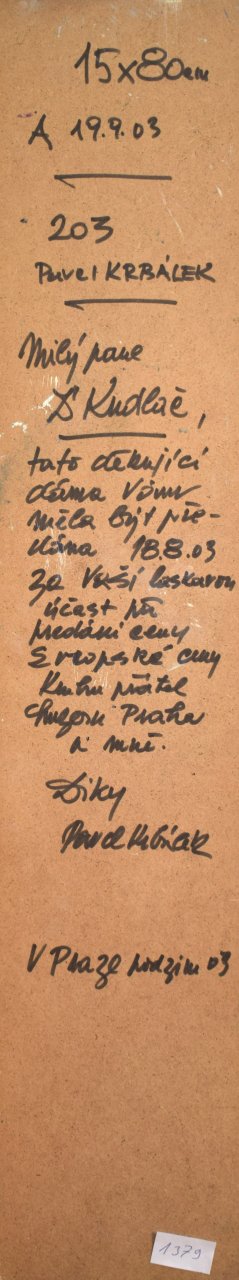 15x80cm
A 19.9.03
203
Pavel KRBÁLEK
Milý pane
Kudláč,
tato děkující
dáma Vám
měla být pře-
dána 18.8.03
za Vaši laskavou
účast při
předání ceny
Evropské ceny
Klubu přátel
Praha
a mně.
Díky
Pavel Krbálek
V Praze podzim 03
1379